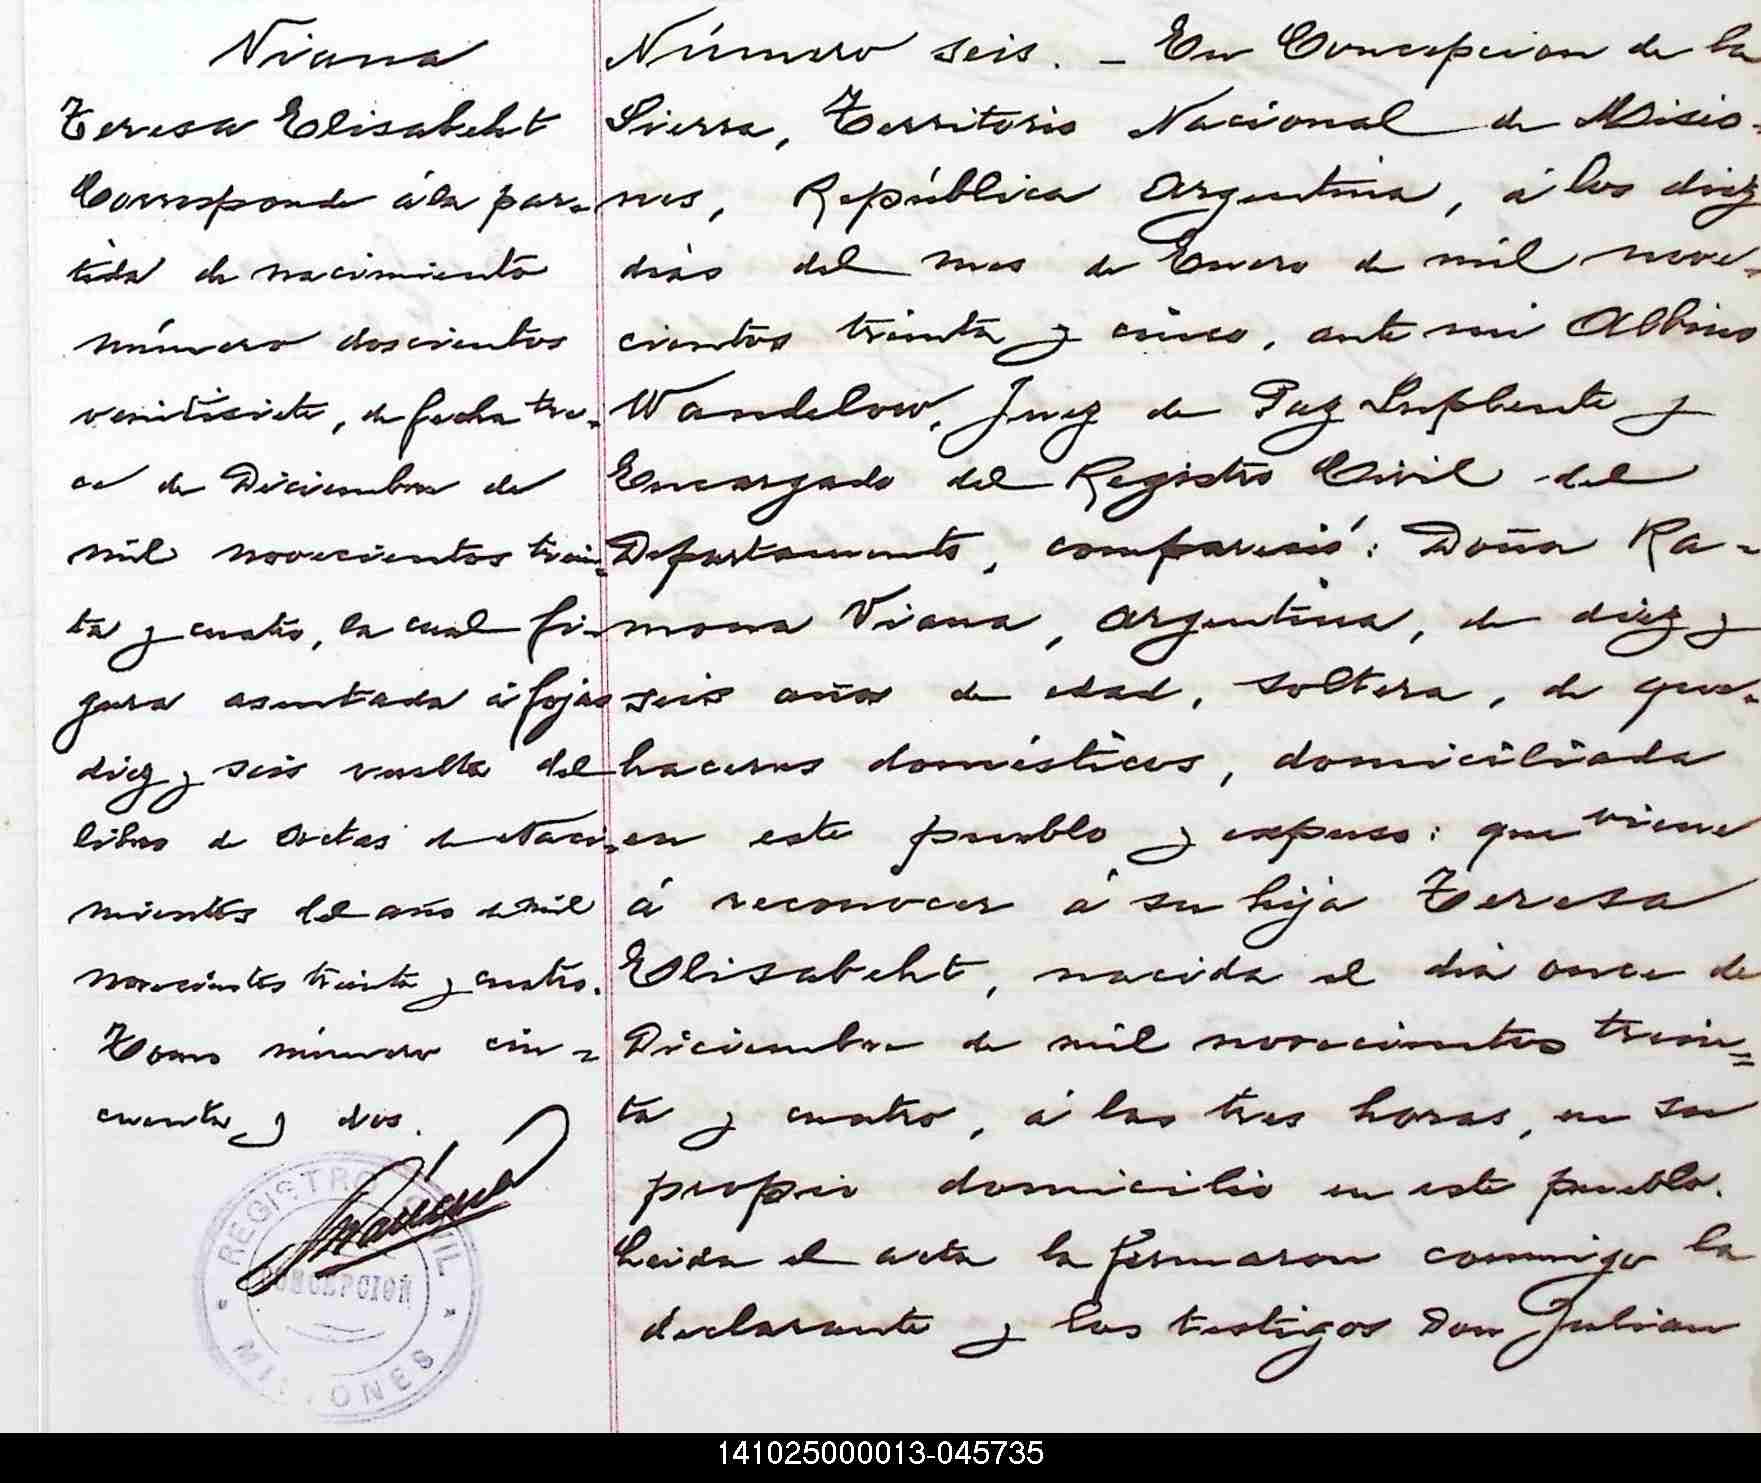 Viana
Teresa Elisabeht
Corresponde á la par-
tida de nacimiento
número doscientos
veintisiete, de fecha tre-
ce de Diciembre de
mil novecientos trein-
ta y cuatro, la cual fi-
gura asentada á fojas
diez y seis vuelta del
libro de Actas de Naci-
mientos del año de mil
novecientos treinta y cuatro.
Tomo número cin-
cuenta y dos.
REGISTRO CIVIL
CONCEPCION
MISIONES
Número seis. - En Concepcion de la
Sierra, Territorio Nacional de Misio-
nes, República Argentina, á los diez
dias del mes de Enero de mil nove-
cientos treinta y cinco, ante mi Albino
Wandelow, Juez de Paz Suplente y
Encargado del Registro Civil del
Departamento, compareció: Doña Ra-
mona Viana, argentina, de diez y
seis años de edad, soltera, de que-
haceres domésticos, domiciliada
en este pueblo y expuso: que viene
á reconocer á su hija Teresa
Elisabeht, nacida el dia once de
Diciembre de mil novecientos trein-
ta y cuatro, á las tres horas, en su
propio domicilio en este pueblo.
Leida el acta la firmaron conmigo la
declarante y los testigos Don Julian
141025000013-045735